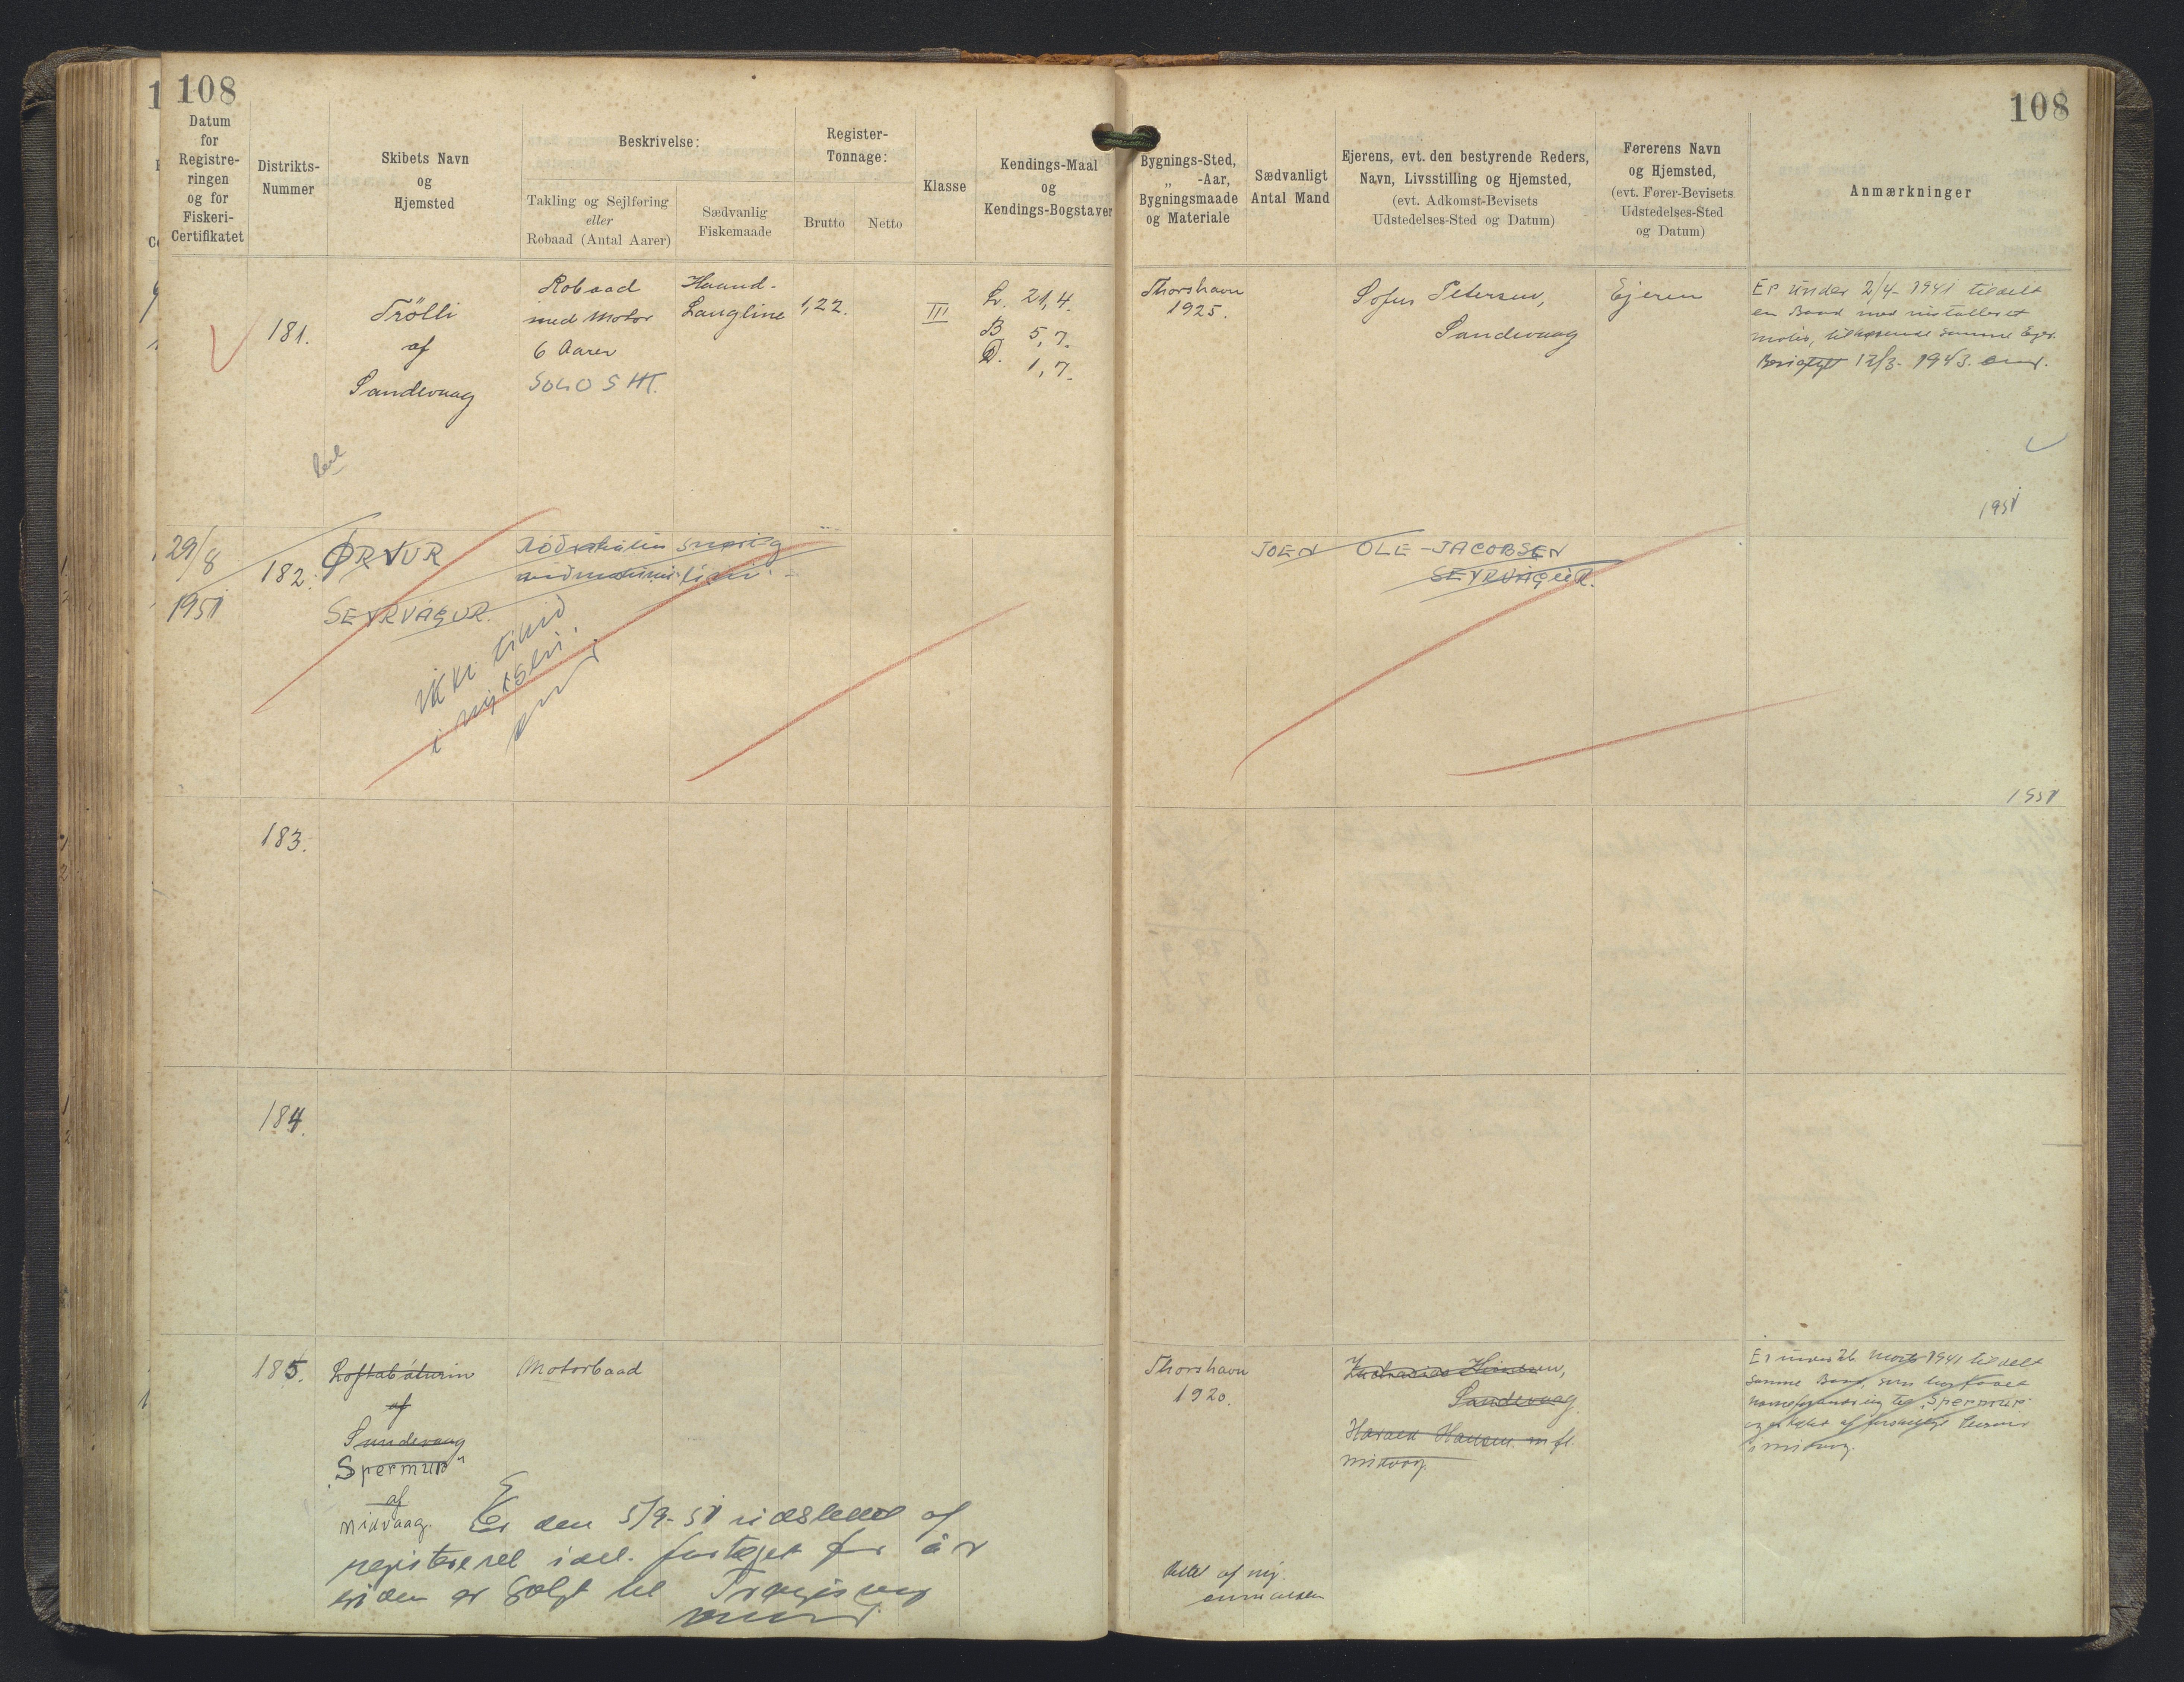 108
108
Datum
for
Registre-
ringen
og for
Fiskeri-
Certifikatet
Distrikts-
Nummer
Skibets Navn
og
Hjemsted
Beskrivelse:
Takling og Sejlføring
eller
Robaad (Antal Aarer)
Sædvanlig
Fiskemaade
Register-
Tonnage:
Brutto
Netto
Klasse
Kendings-Maal
og
Kendings-Bogstaver
Bygnings-Sted,
„ -Aar,
Bygningsmaade
og Materiale
Sædvanligt
Antal Mand
Ejerens, evt. den bestyrende Reders,
Navn, Livsstilling og Hjemsted,
(evt. Adkomst-Bevisets
Udstedelses-Sted og Datum)
Førerens Navn
og Hjemsted,
(evt. Fører-Bevisets
Udstedelses-Sted
og Datum)
Anmærkninger
181.
Trölli
af
Sandevaag
Robaad
med Motor
6 Aarer
SOLO 5 HK.
Haand-
Langline
1,22.
III
L. 21,4.
B 5,7.
D. 1,7.
Thorshavn
1925.
Sofus Petersen,
Sandevaag
Ejeren
Er under 2/4- 1941 tildelt
en Baad med installeret
Motor, tilhørende samme Ejer.
12/3- 1943.
1951
29/8
1951
182.
ØRVUR
SEYRVÁGUR.
ikki tikið
i
JOEN OLE-JACOBSEN
SEYRVÁGUR.
1951
183.
184.
185.
Loftabáturin
af
Sandevaag
„Spermur"
af
Midvaag.
Motorbaad
Thorshavn
1920.
Sandevaag.
Hansen m fl.
Midvaag.
Er under 26. Marts 1941 tildelt
samme Baad, som har faaet
Navneforandring til „Spermur"
i Midvaag.
Er den 5/9-51 udslettet af
registeret idet fartøjet for år
siden er solgt til